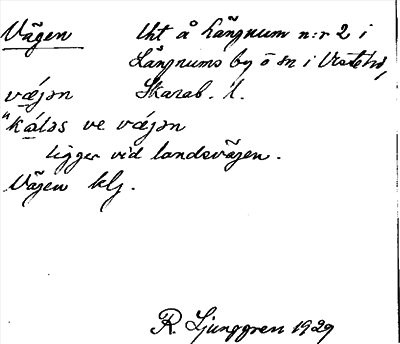 Vägen    Uht å Längnum n:r 2 i
Långnums by ö sn i
väjən    Skarab. l.
"kåləs ve väjən
ligger vid landsvägen.
Väjen klj.
R. Ljunggren 1929